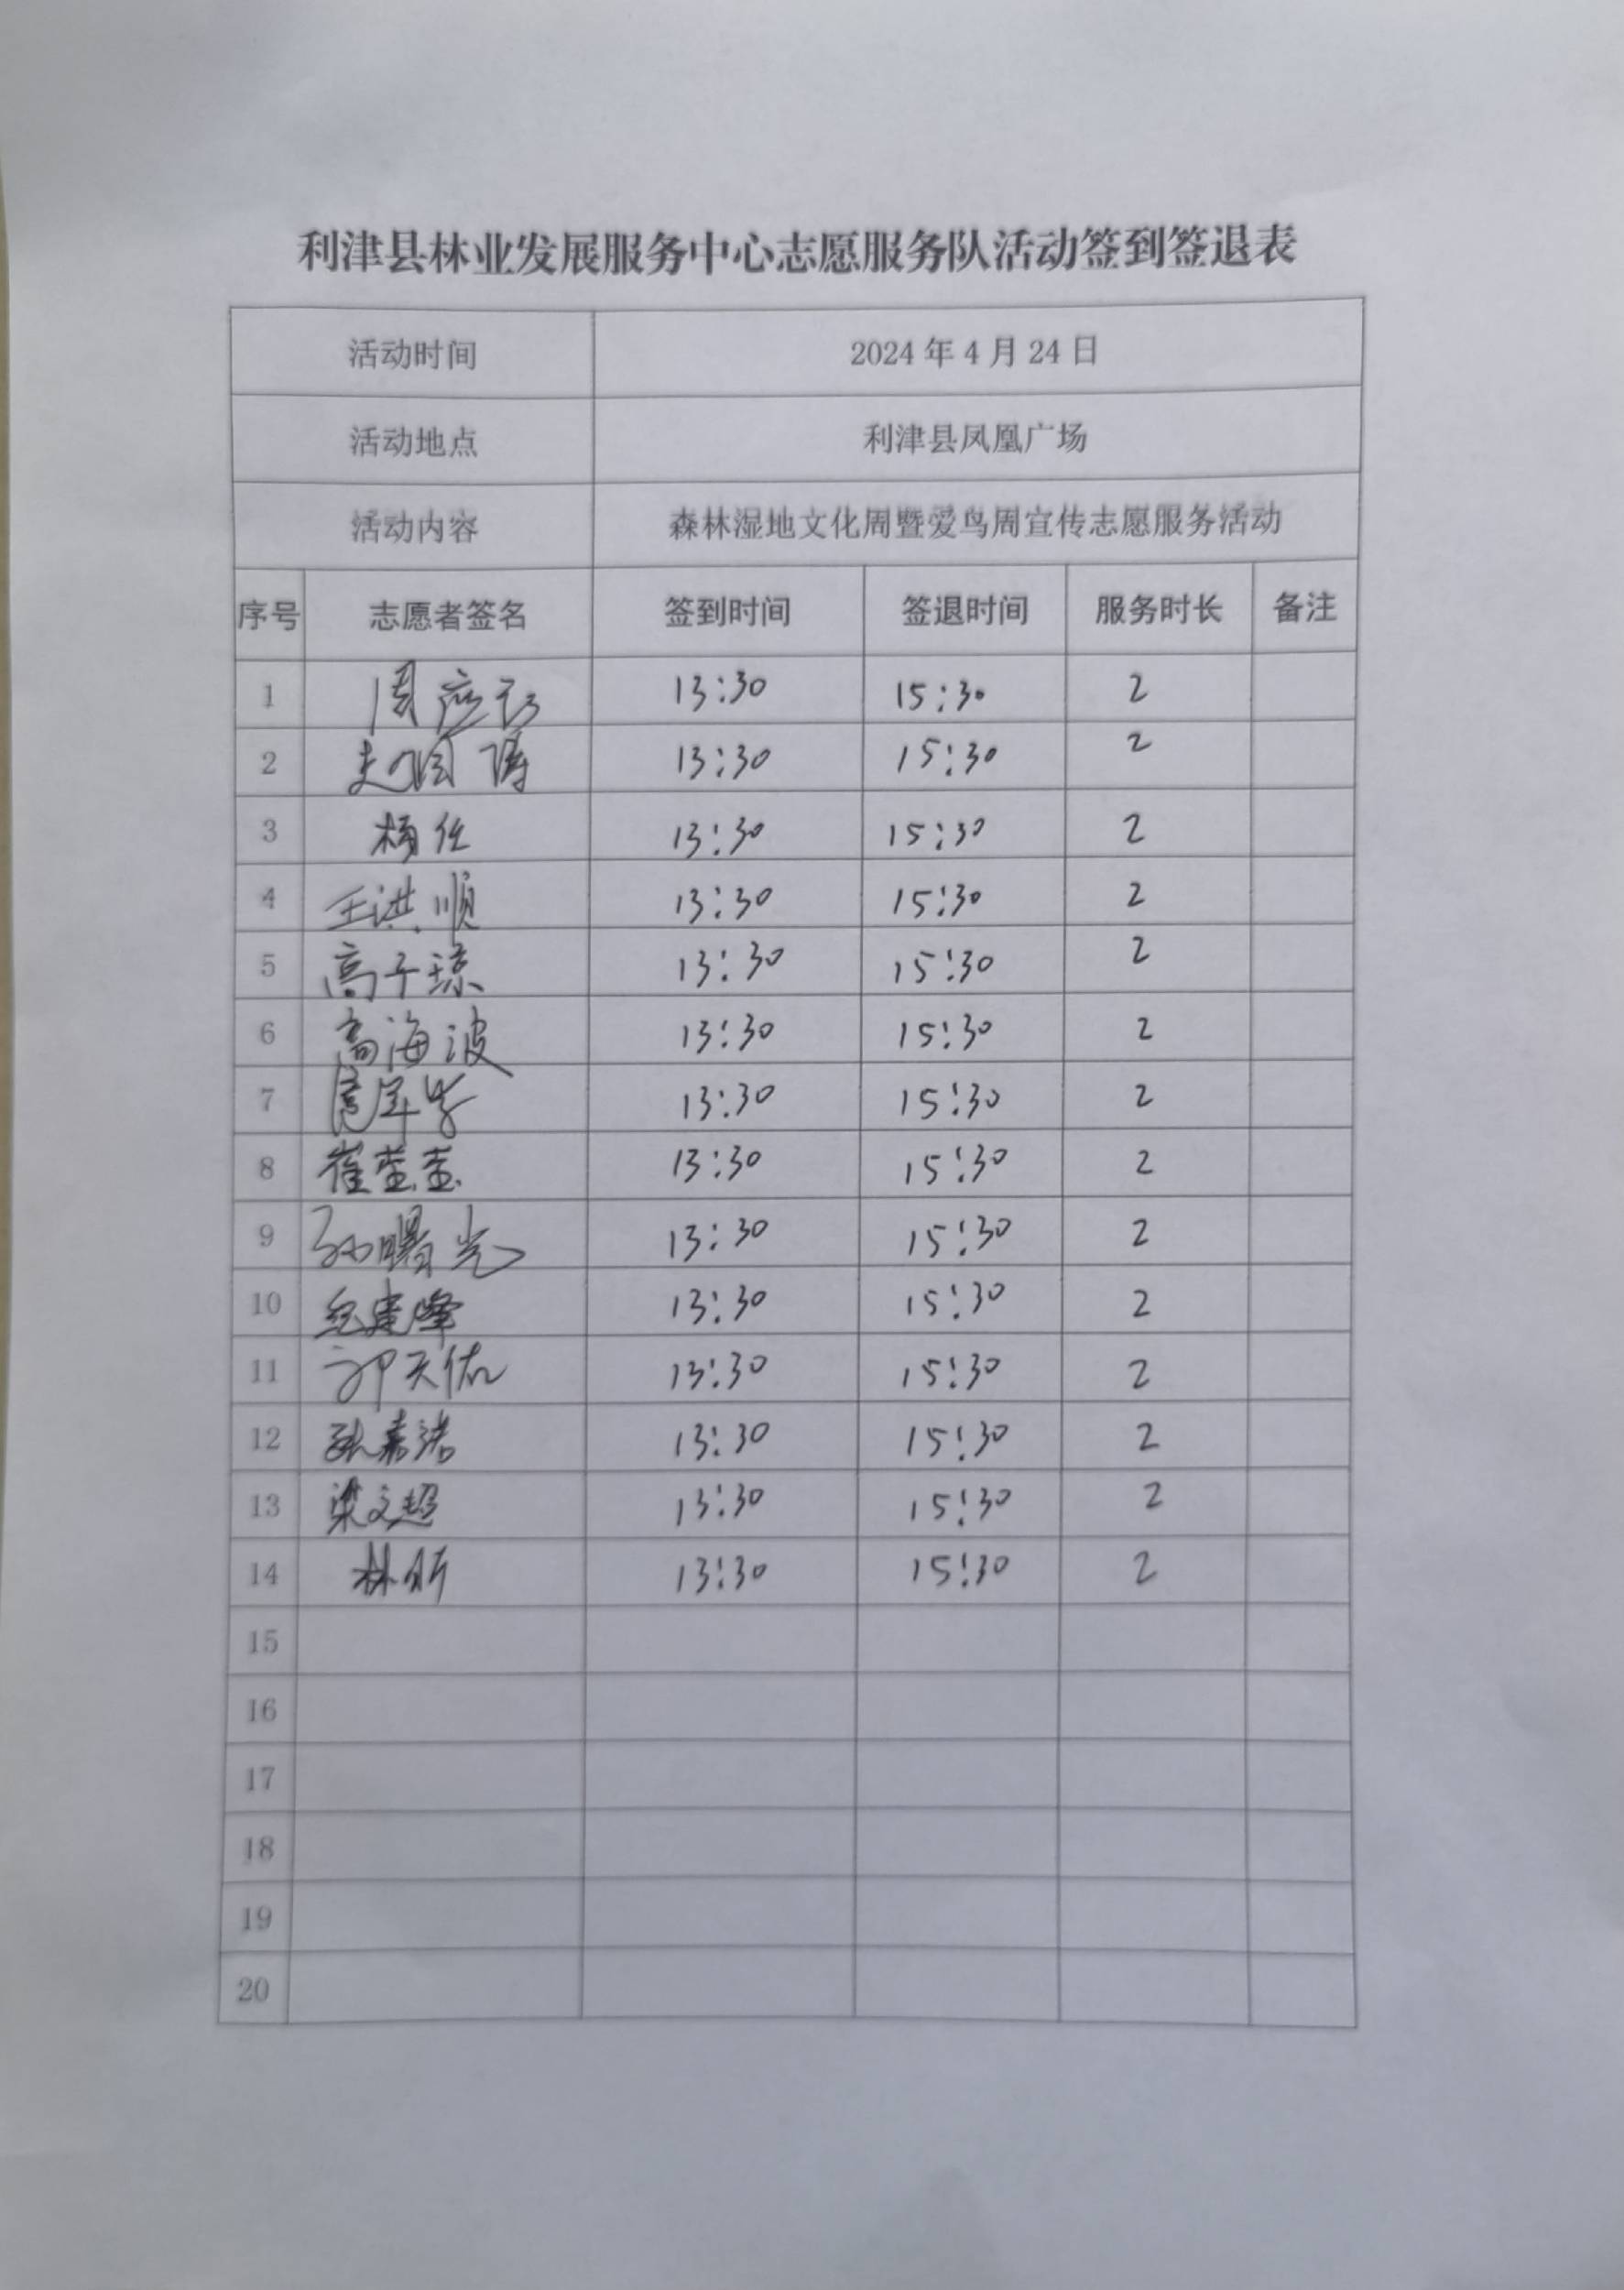 利津县林业发展服务中心志愿服务队活动签到签退表
活动时间 2024年4月24日
活动地点 利津县凤凰广场
活动内容 森林湿地文化周暨爱鸟周宣传志愿服务活动
序号 志愿者签名 签到时间 签退时间 服务时长 备注
1 周 13:30 15:30 2
2 13:30 15:30 2
3 杨 13:30 15:30 2
4 王洪顺 13:30 15:30 2
5 高子琼 13:30 15:30 2
6 高海波 13:30 15:30 2
7 13:30 15:30 2
8 崔 13:30 15:30 2
9 孙曙光 13:30 15:30 2
10 纪建峰 13:30 15:30 2
11 郭天佑 13:30 15:30 2
12 13:30 15:30 2
13 梁文超 13:30 15:30 2
14 林昕 13:30 15:30 2
15
16
17
18
19
20